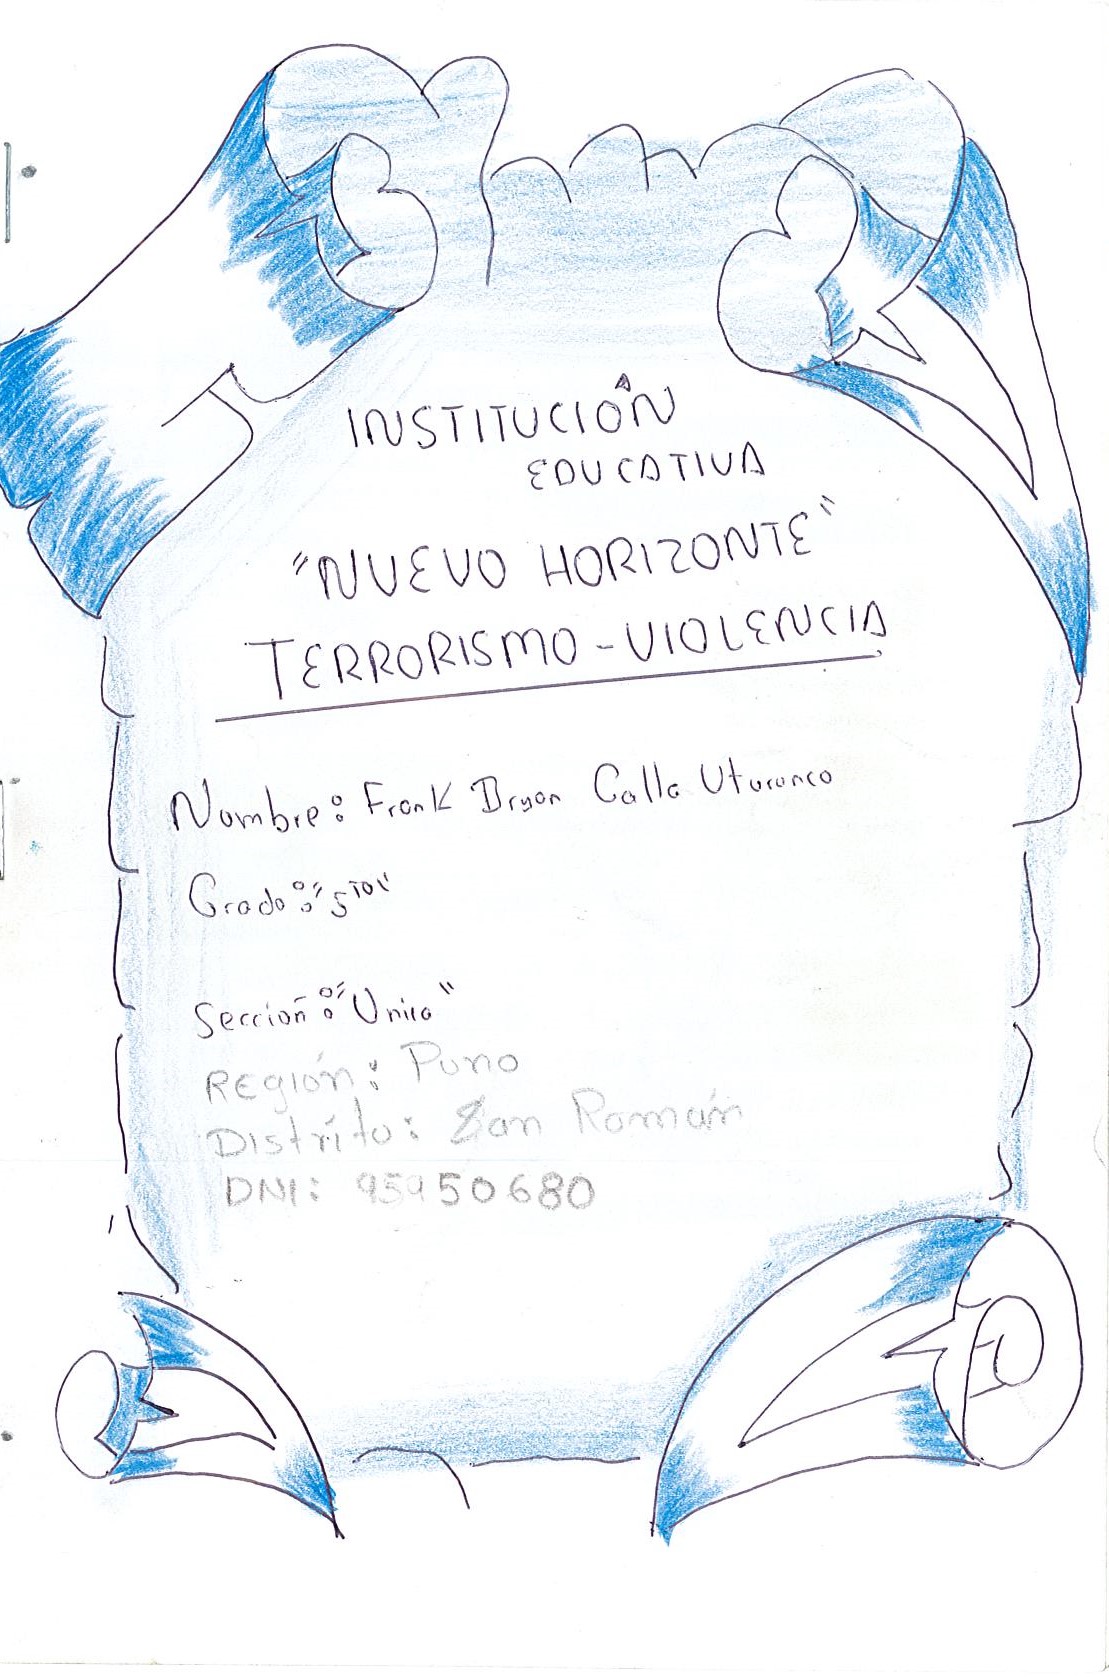 INSTITUCIÓN
EDUCATIVA
"NUEVO HORIZONTE"
TERRORISMO - VIOLENCIA
Nombre: Frank Bryan Calla Uturunco
Grado: "5TO"
Sección: "Unica"
REGIÓN: Puno
Distrito: San Román
DNI: 95950680